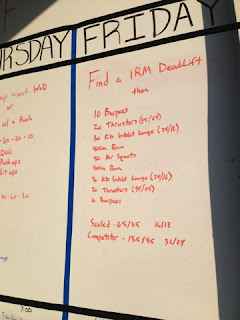 RSDAY FRIDAY
up mixed WOD
or
w/ a Push
-30-20-10
DU's
Pushups
Situps
-40-60-80
Find a 1RM DeadLift
then
10 Burpees
20 Thrusters (95/65)
30 Kb Goblet Lunge (24/16)
400m Run
50 Air Squats
400m Run
30 Kb Goblet Lunge (24/16)
20 Thrusters (95/65)
10 Burpees
Scaled - 65/35 16/12
Competitor - 135/95 32/24
7:00